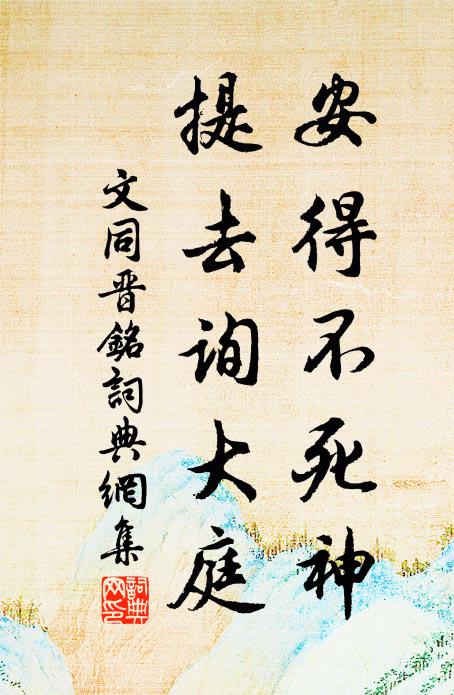 安得不死神
提去询大庭
文同晋銘詞典網集
詞典網印